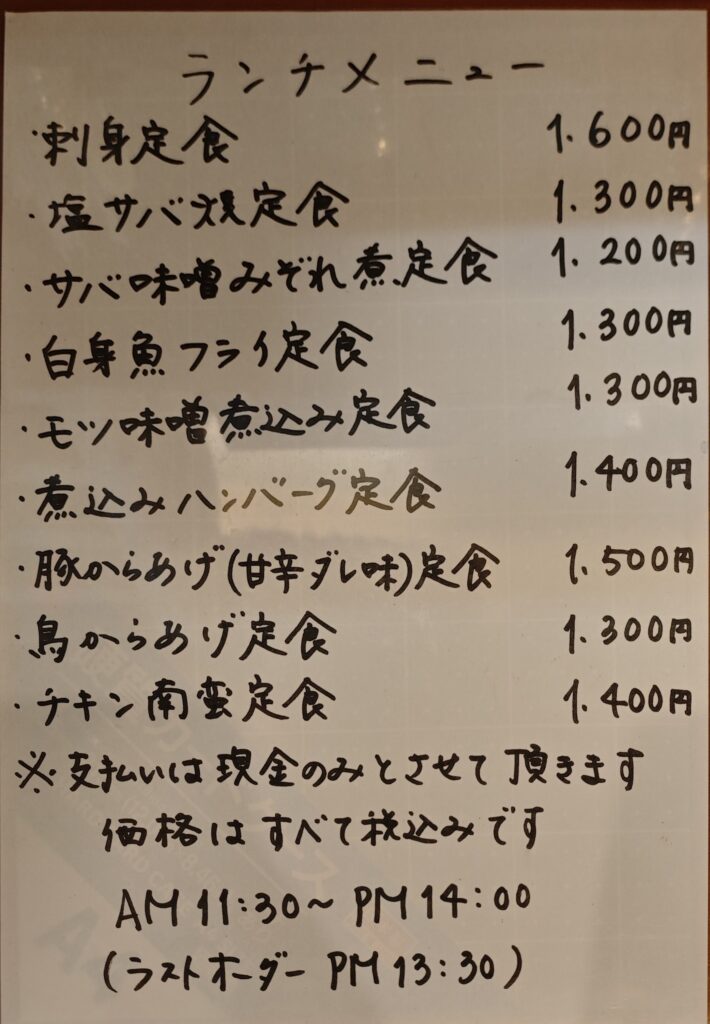 ランチメニュー
・刺身定食 1.600円
・塩サバ焼定食 1.300円
・サバ味噌みぞれ煮定食 1.200円
・白身魚フライ定食 1.300円
・モツ味噌煮込み定食 1.300円
・煮込みハンバーグ定食 1.400円
・豚からあげ(甘辛ダレ味)定食 1.500円
・鳥からあげ定食 1.300円
・チキン南蛮定食 1.400円
※支払いは現金のみとさせて頂きます
価格はすべて税込みです
AM 11:30〜 PM 14:00
(ラストオーダー PM 13:30)